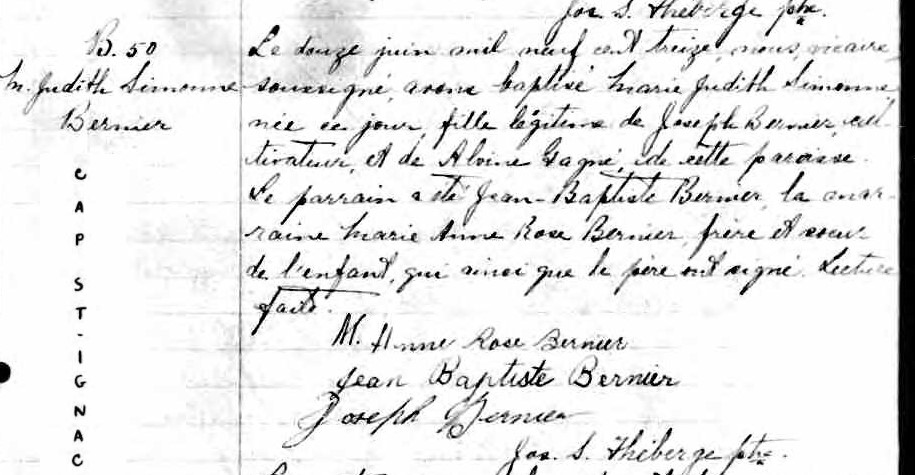 Jos. S. Théberge ptre.
B. 50
M. Judith Simonne
Bernier
CAP ST-IGNAC
Le douze juin mil neuf cent treize, nous, vicaire
soussigné, avons baptisé Marie Judith Simonne,
née ce jour, fille légitime de Joseph Bernier, cul-
tivateur, et de Alvine Gagné, de cette paroisse.
Le parrain a été Jean-Baptiste Bernier, la mar-
raine Marie Anne Rose Bernier, frère et soeur
de l'enfant, qui ainsi que le père ont signé. Lecture
faite.
M. Anne Rose Bernier
Jean Baptiste Bernier
Joseph Bernier
Jos. S. Théberge ptre.